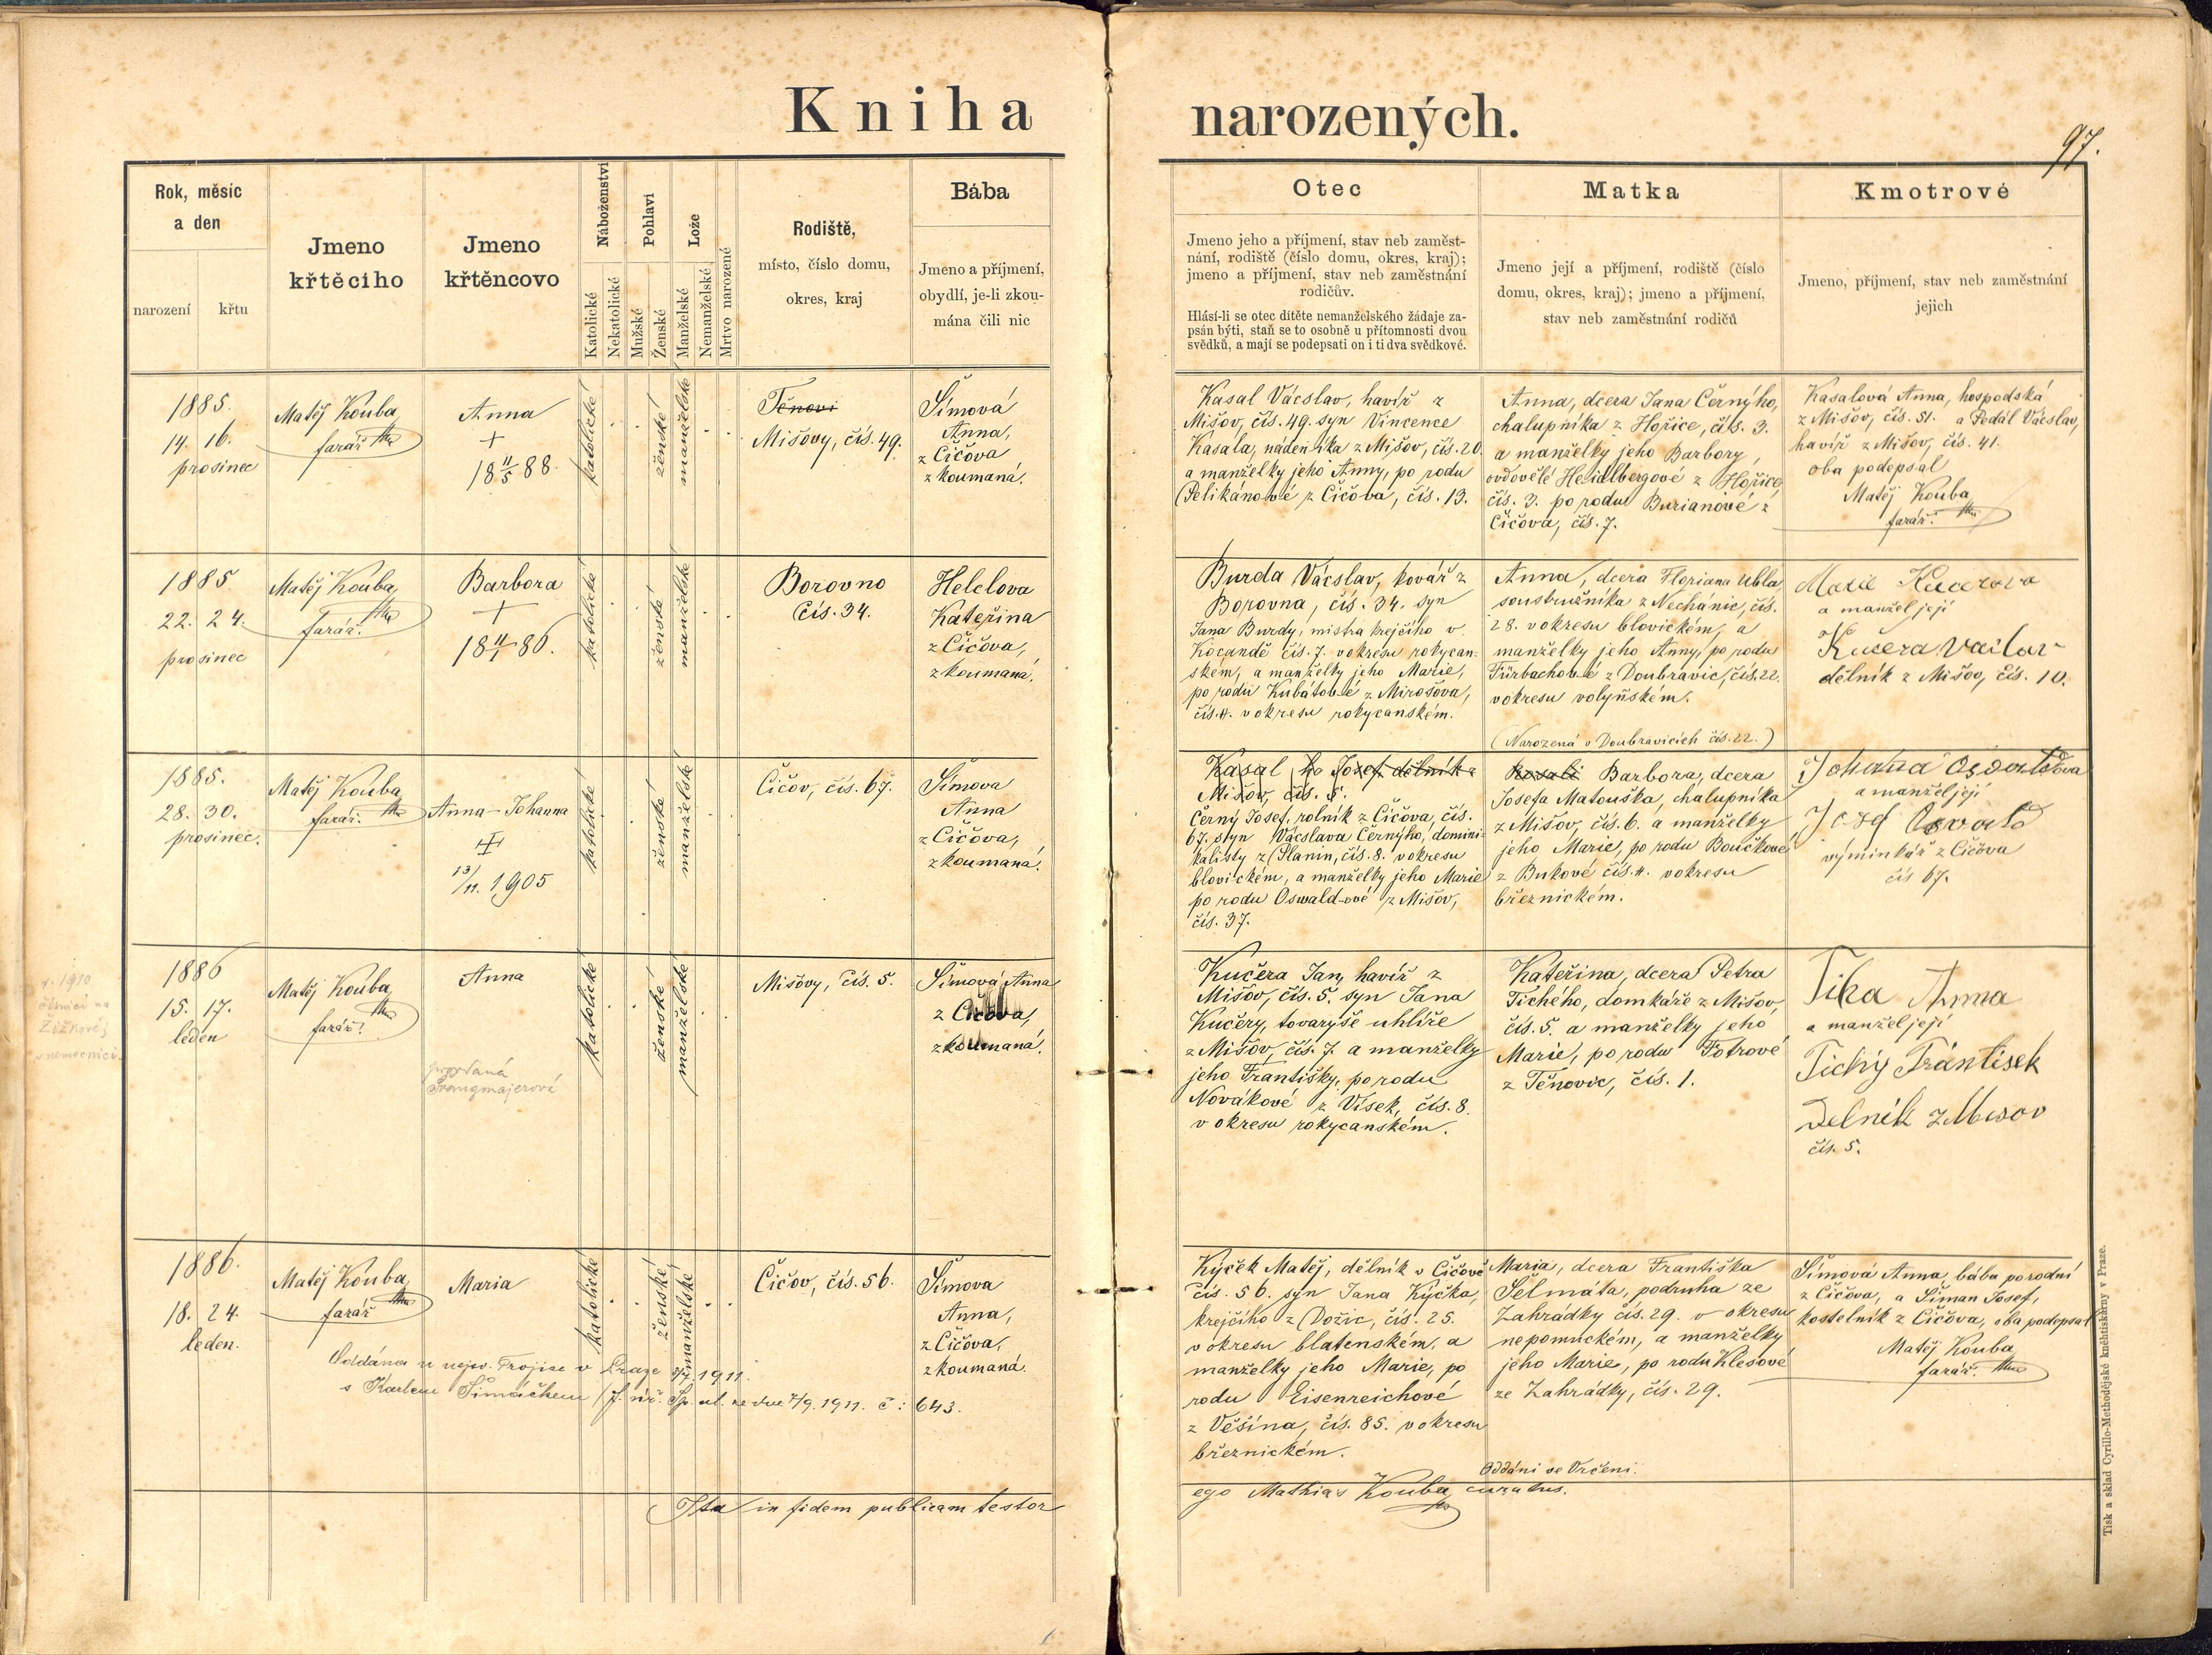 Kniha narozených.
97.
Rok, měsíc
a den
narození
křtu
Jmeno
křtěcího
Jmeno
křtěncovo
Náboženství
Katolické
Nekatolické
Pohlaví
Mužské
Ženské
Lože
Manželské
Nemanželské
Mrtvo narozené
Rodiště,
místo, číslo domu,
okres, kraj
Bába
Jmeno a příjmení,
obydlí, je-li zkou-
mána čili nic
Otec
Jmeno jeho a příjmení, stav neb zaměst-
nání, rodiště (číslo domu, okres, kraj);
jmeno a příjmení, stav neb zaměstnání
rodičův.
Hlásí-li se otec dítěte nemanželského žádaje za-
psán býti, staň se to osobně u přítomnosti dvou
svědků, a mají se podepsati on i ti dva svědkové.
Matka
Jmeno její a příjmení, rodiště (číslo
domu, okres, kraj); jmeno a příjmení,
stav neb zaměstnání rodičů
Kmotrové
Jmeno, příjmení, stav neb zaměstnání
jejich
1885.
14. 16.
prosinec
Matěj Kouba,
farář
Anna
+
18 11/5 88.
katolické
ženské
manželské
Těnovi
Mišovy, čís. 49.
Šímová
Anna,
z Čičova
zkoumaná.
Kasal Václav, havíř z
Mišov, čís. 49. syn Vincence
Kasala, nádeníka z Mišov, čís. 20.
a manželky jeho Anny, po rodu
Pelikánové z Čičova, čís. 13.
Anna, dcera Jana Černýho,
chalupníka z Hořice, čís. 3.
a manželky jeho Barbory,
ovdovělé Heidlbergové z Hořice,
čís. 3. po rodu Burianové z
Čičova, čís. 7.
Kasalová Anna, hospodská
z Mišov, čís. 51. a Pedál Václav,
havíř z Mišov, čís. 41.
oba podepsal
Matěj Kouba
farář.
1885.
22. 24.
prosinec
Matěj Kouba,
farář.
Barbora
+
18 4/1 86.
katolické
ženské
manželské
Borovno
čís. 34.
Helclova
Kateřina
z Čičova,
zkoumaná.
Burda Václav, kovář z
Borovna, čís. 34. syn
Jana Burdy, mistra krejčího v
Kocandě čís. 7. v okresu rokycan-
ském, a manželky jeho Marie,
po rodu Kubátové z Mirošova,
čís. 4. v okresu rokycanském.
Anna, dcera Floriana Ubla,
soustružníka z Nechánic, čís.
28. v okresu blovickém, a
manželky jeho Anny, po rodu
Fürbachové z Doubravic, čís. 22.
v okresu volyňském.
(Narozená v Doubravicích čís. 22.)
Marie Kucerova
a manžel její
Kučera Vaclav
dělník z Mišov, čís. 10.
1885.
28. 30.
prosinec.
Matěj Kouba,
farář.
Anna-Johanna
13/11. 1905
katolické
ženské
manželské
Čičov, čís. 67.
Šímova
Anna
z Čičova,
zkoumaná.
Kasal Josef dělník z
Mišov, čís. 5.
Černý Josef, rolník z Čičova, čís.
67. syn Václava Černýho, domini-
kalisty z Planin, čís. 8. v okresu
blovickém, a manželky jeho Marie
po rodu Oswald-ové z Mišov,
čís. 37.
Rosali Barbora, dcera
Josefa Matouška, chalupníka
z Mišov, čís. 6. a manželky
jeho Marie, po rodu Boučkové
z Bukové čís. 4. v okresu
březnickém.
Johana Osvaldova
a manžel její
Osvald
výminkář z Čičova
čís 67.
1886
15. 17.
leden
Matěj Kouba
farář.
Anna
katolické
ženské
manželské
Mišovy, čís. 5.
Šímová Anna
z Čičova,
zkoumaná.
Kučera Jan, havíř z
Mišov, čís. 5. syn Jana
Kučery, tovaryše uhlíře
z Mišov, čís. 7. a manželky
jeho Františky, po rodu
Novákové z Vísek, čís. 8.
v okresu rokycanském.
Kateřina, dcera Petra
Tichého, domkáře z Mišov,
čís. 5. a manželky jeho
Marie, po rodu Fotrové
z Těnovic, čís. 1.
Tiha Anna
a manžel její
Tichý František
Delnik z Misov
čís. 5.
r. 1910
1886.
18. 24.
leden.
Matěj Kouba,
farář
Maria
katolické
ženské
manželské
Čičov, čís. 56.
Šímova
Anna,
z Čičova,
zkoumaná.
Oddána u nejsv. Trojice v Praze 1911.
s Karlem Šimáčkem 7/9. 1911. č: 643.
Kýček Matěj, dělník v Čičově
čís. 56. syn Jana Kýčka,
krejčího z Dožic, čís. 25.
v okresu blatenském, a
manželky jeho Marie, po
rodu Eisenreichové
z Věšína, čís. 85. v okresu
březnickém.
Maria, dcera Františka
Šelmáta, podruha ze
Zahrádky čís. 29. v okresu
nepomuckém, a manželky
jeho Marie, po rodu Klesové
ze Zahrádky, čís. 29.
Oddáni ve Vrčeni.
Šímová Anna, bába porodní
z Čičova, a Šiman Josef,
kostelník z Čičova, oba podepsal
Matěj Kouba,
farář.
Ita in fidem publicam testor
ego Mathias Kouba, curatus.
Tisk a sklad Cyrillo-Methodějské knihtiskárny v Praze.